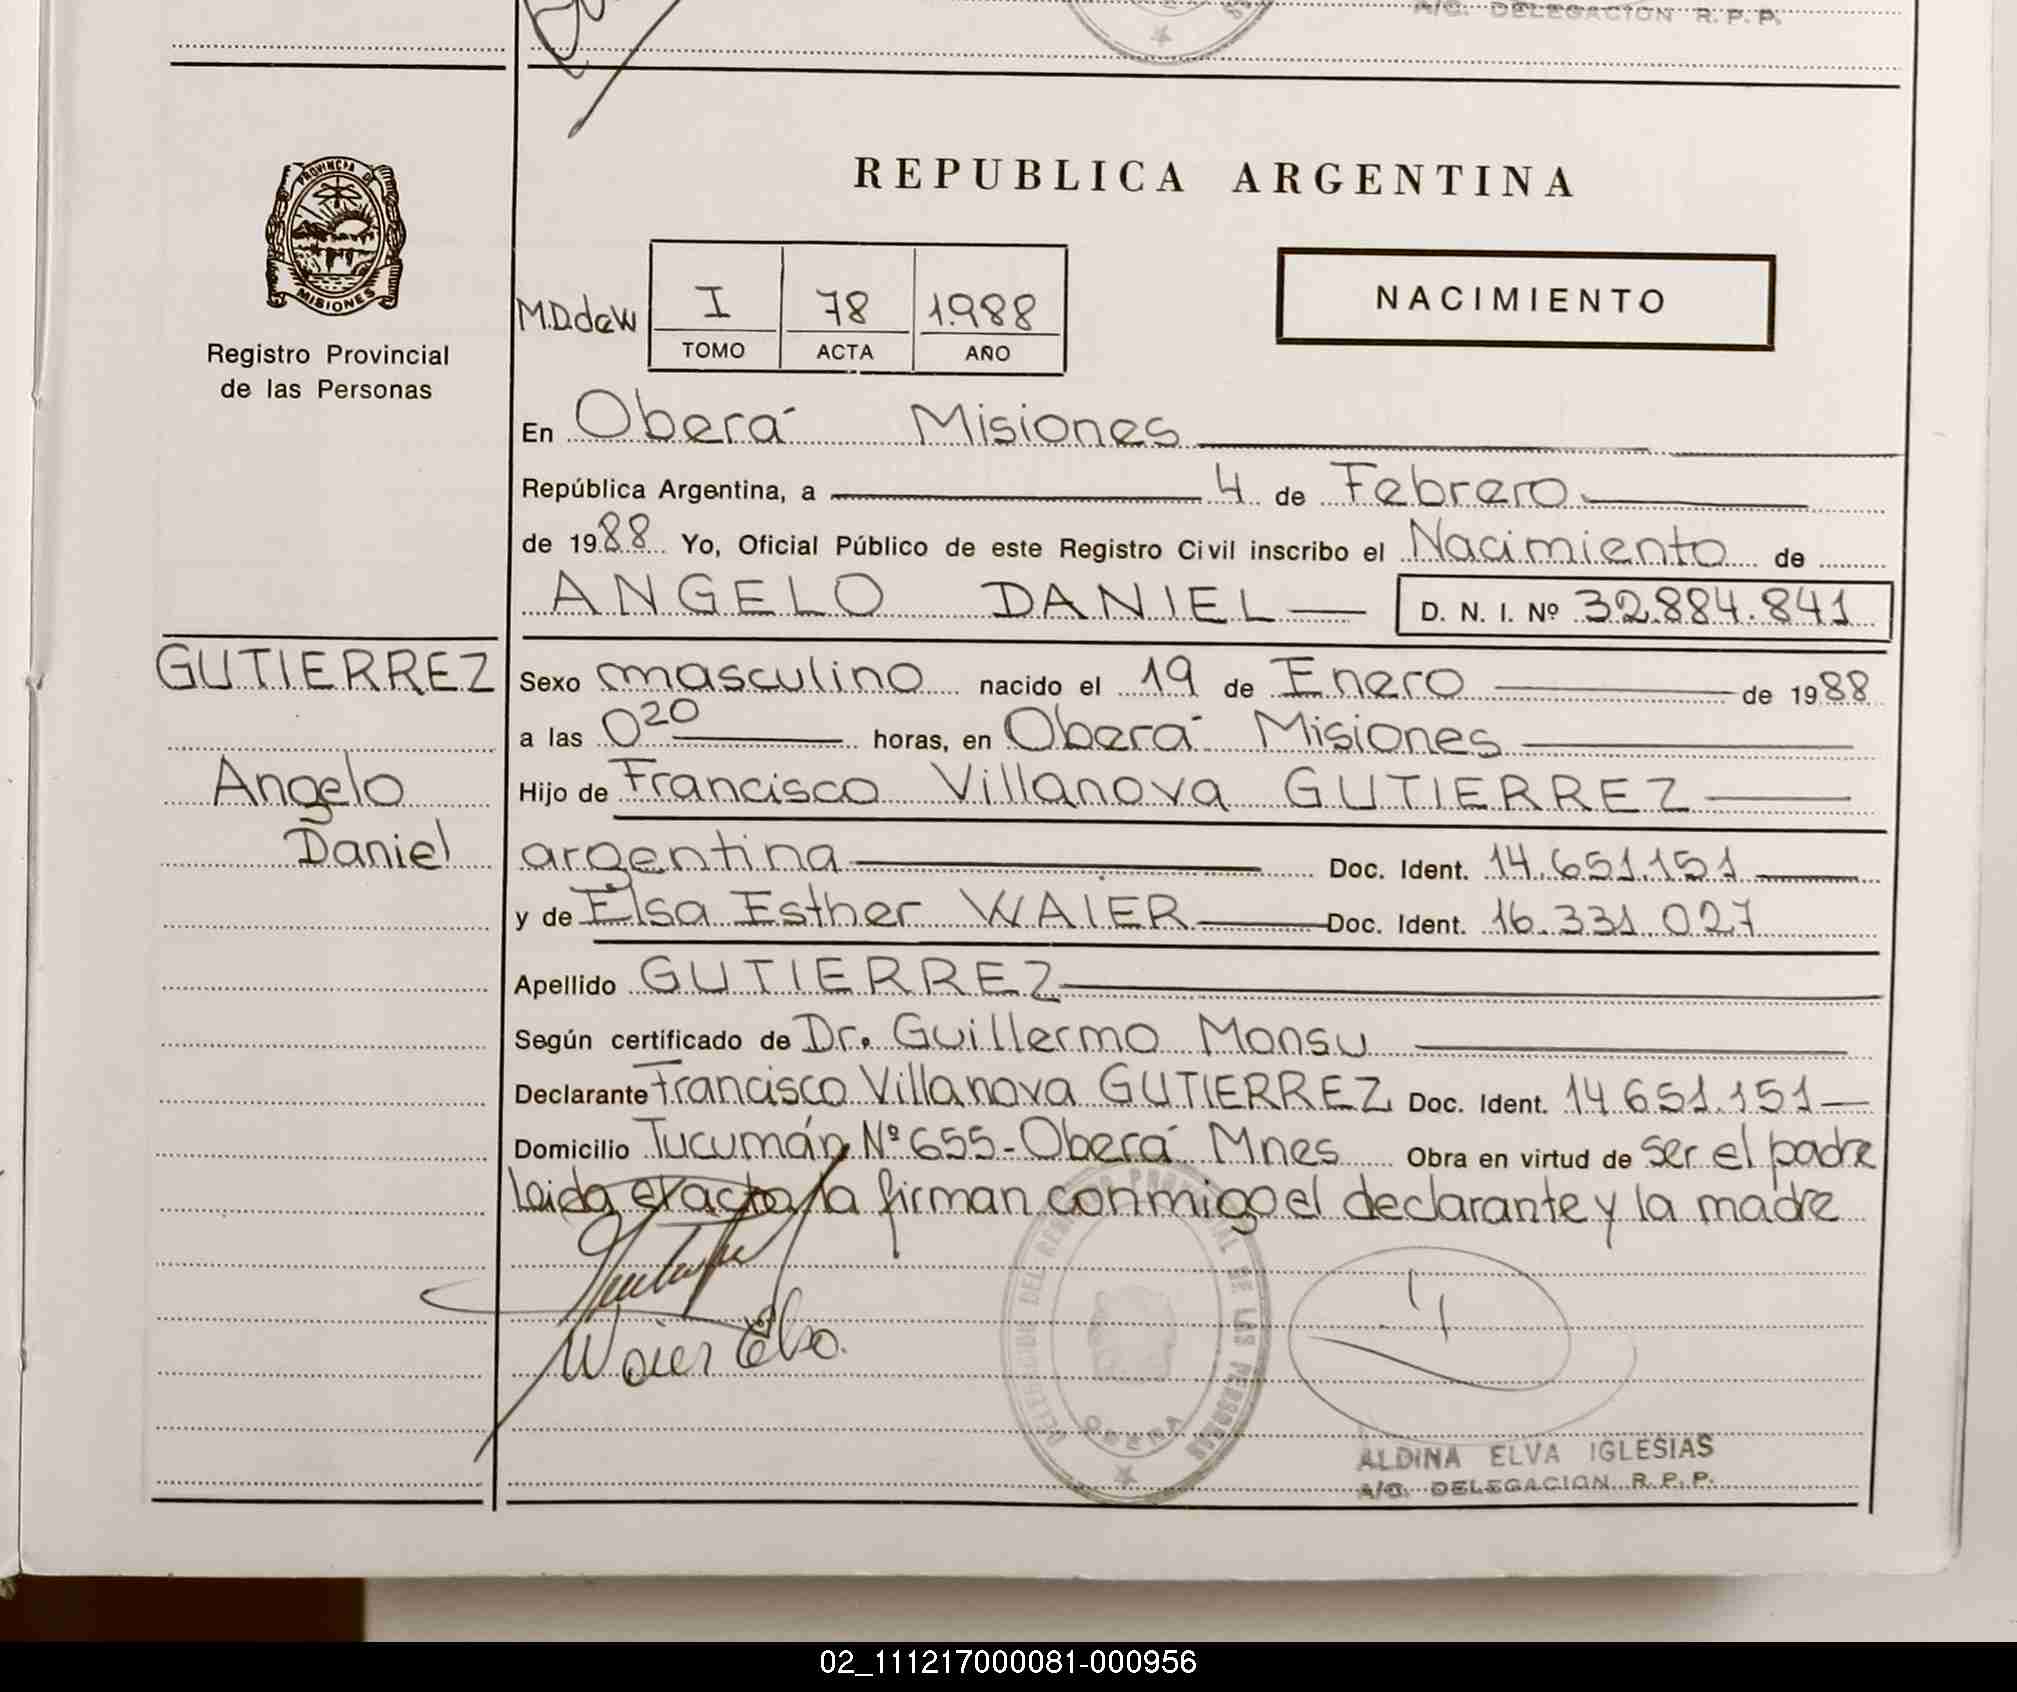 A/C. DELEGACION R. P. P.
PROVINCIA D
MISIONES
Registro Provincial
de las Personas
REPUBLICA ARGENTINA
NACIMIENTO
M.D.deW
I 78 1.988
TOMO ACTA AÑO
En Oberá Misiones
República Argentina, a 4 de Febrero
de 1988 Yo, Oficial Público de este Registro Civil inscribo el Nacimiento de
ANGELO DANIEL D. N. I. Nº 32.884.841
GUTIERREZ
Angelo
Daniel
Sexo masculino nacido el 19 de Enero de 1988
a las 0 20 horas, en Oberá Misiones
Hijo de Francisco Villanova GUTIERREZ
argentina Doc. Ident. 14.651.151
y de Elsa Esther WAIER Doc. Ident. 16.331.027
Apellido GUTIERREZ
Según certificado de Dr. Guillermo Monsu
Declarante Francisco Villanova GUTIERREZ Doc. Ident. 14 651.151
Domicilio Tucumán Nº 655-Oberá Mnes Obra en virtud de ser el padre
Leida exacta la firman conmigo el declarante y la madre
Waier Elsa.
DELEGACION DEL REGISTRO PROVINCIAL DE LAS PERSONAS
OBERA
ALDINA ELVA IGLESIAS
A/C. DELEGACION R. P. P.
02_111217000081-000956